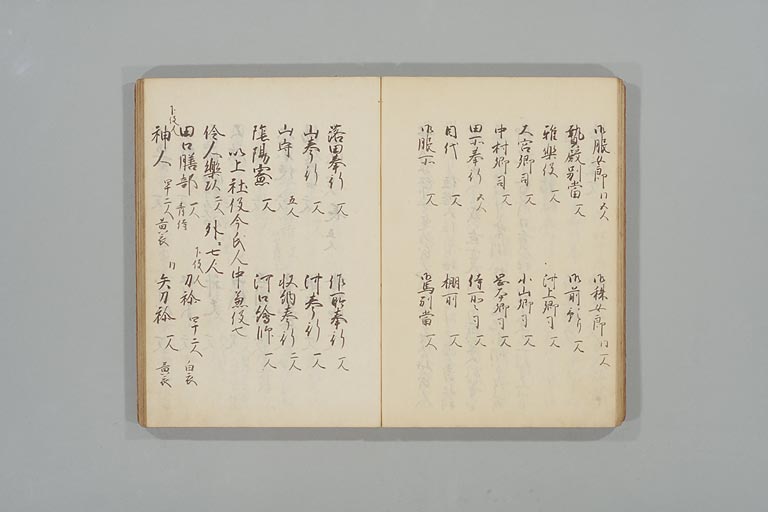 御服女郎 〃六人 御様女郎 〃一人
贄殿別當 一人 御前〻 一人
雅樂役 一人 河上郷司 一人
大宮郷司 一人 小山郷司 一人
中村郷司 一人 岡本郷司 一人
田所奉行 六人 侍所〻司 一人
目代 一人 棚所 一人
御服所 一人 御馬別當 一人
落田奉行 一人 作所奉行 一人
山奉行 一人 河奉行 一人
山守 五人 収納奉行 二人
陰陽寮 一人 河口繪師 一人
以上社役今氏人中兼役也
伶人樂頭 二人 外ニ七人
田口膳部 一人 青侍 下役人 刀祢 四十二人 白衣
下役人 神人 四十二人 黄衣 〃 矢刀祢 一人 黄衣